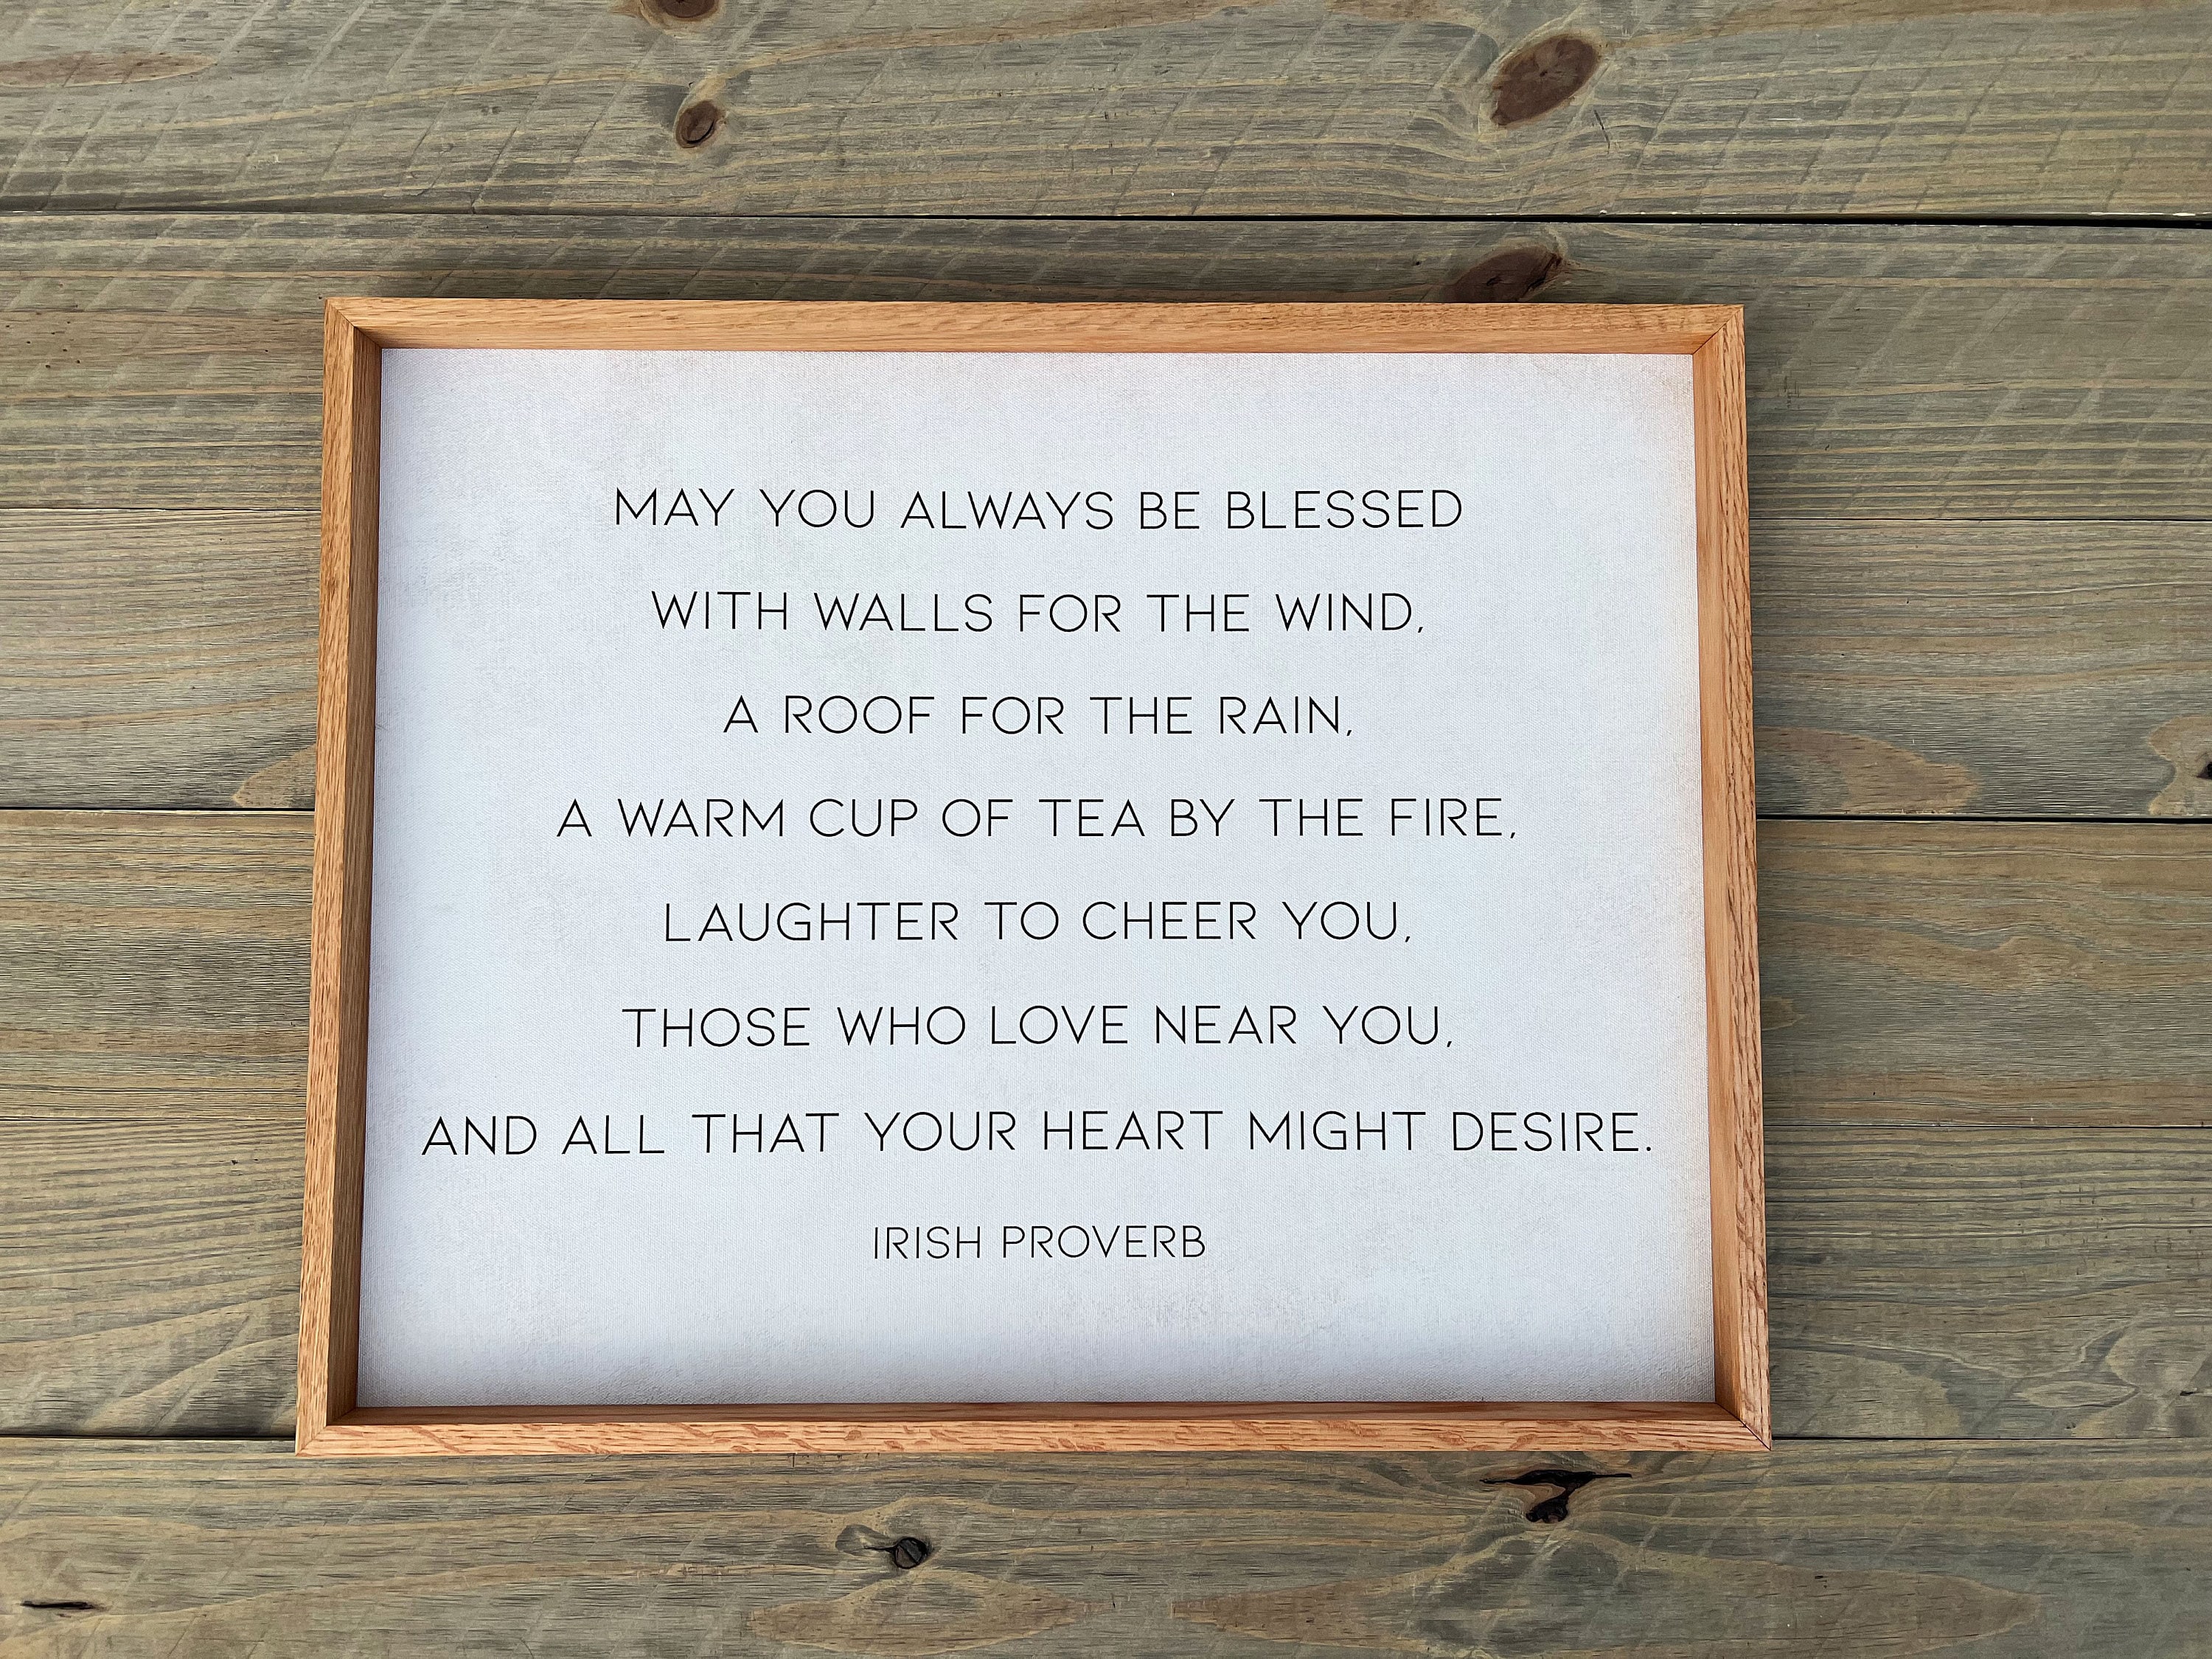 MAY YOU ALWAYS BE BLESSED
WITH WALLS FOR THE WIND,
A ROOF FOR THE RAIN,
A WARM CUP OF TEA BY THE FIRE,
LAUGHTER TO CHEER YOU,
THOSE WHO LOVE NEAR YOU,
AND ALL THAT YOUR HEART MIGHT DESIRE.
IRISH PROVERB